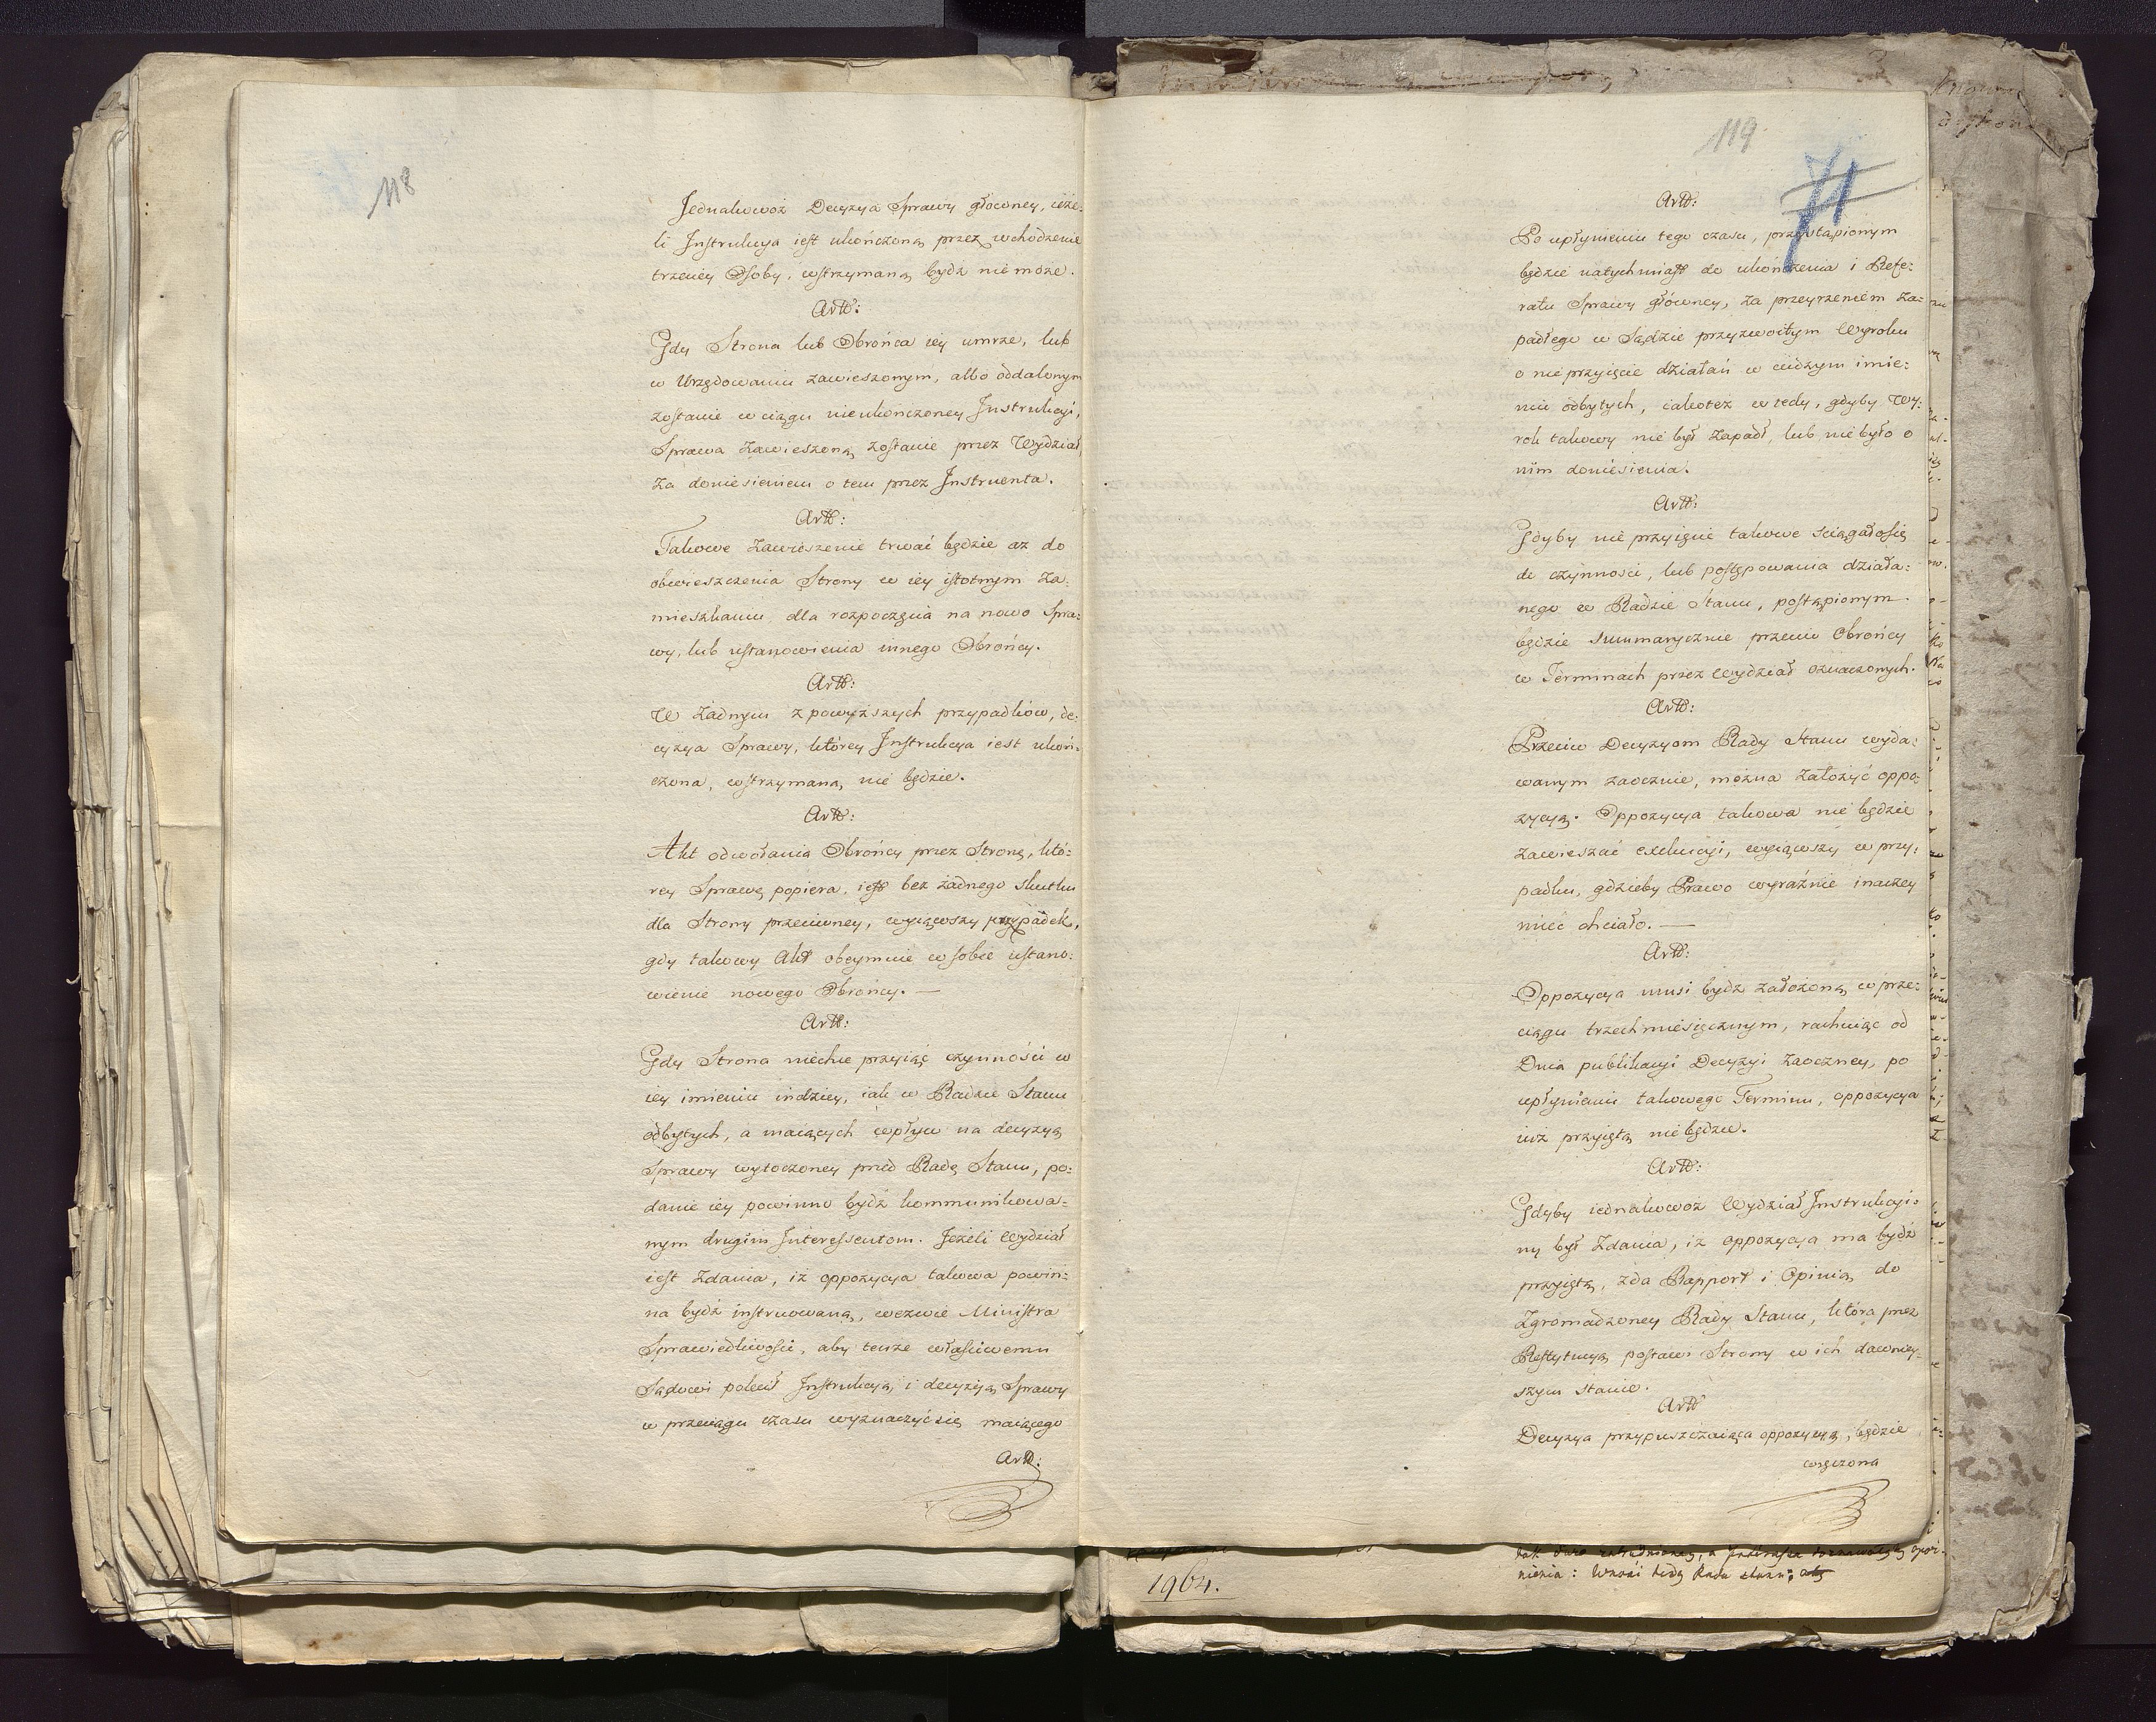 118
Jednakowoż Decyzya Sprawy główney, ieże:
li Instrukcya iest ukończoną przez wchodzenie
trzeciey Osoby, wstrzymaną bydź nie może.
Artt:
Gdy Strona lub Obrońca iey umrze, lub
w Urzędowaniu zawieszonym, albo oddalonym
zostanie w ciągu nieukończoney Instrukcyi,
Sprawa zawieszoną zostanie przez Wydział,
za doniesieniem o tem przez Instruenta.
Artt:
Takowe zawieszenie trwać będzie aż do
obwieszczenia Strony w iey istotnym za:
mieszkaniu dla rozpoczęcia na nowo Spra:
wy, lub ustanowienia innego Obrońcy.
Artt:
W żadnym z powyższych przypadków, de:
cyzya Sprawy, którey Instrukcya iest ukoń:
czona, wstrzymaną nie będzie.
Artt:
Akt odwołania Obrońcy przez Stronę, któ:
rey Sprawę popiera, iest bez żadnego skutku
dla Strony przeciwney, wyiąwszy przypadek,
gdy takowy Akt obeymuie w sobie ustano:
wienie nowego Obrońcy. —
Artt:
Gdy Strona niechce przyiąć czynności w
iey imieniu indziey, iak w Radzie Stanu
odbytych, a maiących wpływ na decyzyą
Sprawy wytoczoney przed Radę Stanu, po:
danie iey powinno bydź kommunikowa:
nym drugim Interessentom. Jeżeli Wydział
iest zdania, iż oppozycya takowa powin:
na bydź instruowaną, wezwie Ministra
Sprawiedliwości, aby tenże właściwemu
Sądowi polecił Instrukcyą i decyzyą Sprawy
w przeciągu czasu wyznaczyć się maiącego
Artt:
119
71
Artt:
Po upłynieniu tego czasu, przystąpionym
będzie natychmiast do ukończenia i Refe:
ratu Sprawy główney, za przeyrzeniem za:
padłego w Sądzie przyzwoitym Wyroku
o nieprzyięcie działań w cudzym imie:
niu odbytych, iakoteż wtedy, gdyby Wy:
rok takowy nie był zapadł, lub nie było o
nim doniesienia.
Artt:
Gdyby nie przyięcie takowe ściągało się
do czynności, lub postępowania działa:
nego w Radzie Stanu, postąpionym
będzie summarycznie przeciw Obrońcy
w Terminach przez Wydział oznaczonych.
Artt:
Przeciw Decyzyom Rady Stanu wyda:
wanym zaocznie, można założyć oppo:
zycyą. Oppozycya takowa nie będzie
zawieszać exekucyi, wyiąwszy w przy:
padku, gdzieby Prawo wyraźnie inaczey
mieć chciało. —
Artt:
Oppozycya musi bydź założoną w prze:
ciągu trzechmiesięcznym, rachuiąc od
Dnia publikacyi Decyzyi zaoczney, po
upłynieniu takowego Terminu, oppozycya
iuż przyiętą nie będzie.
Artt:
Gdyby iednakowoż Wydział Instrukcyi:
ny był zdania, iż oppozycya ma bydź
przyiętą, zda Rapport i Opinią do
Zgromadzoney Rady Stanu, która przez
Restytucyą postawi Strony w ich dawniey:
szym stanie.
Artt
Decyzya przypuszczaiąca oppozycyą, będzie
wręczona
1964.
nienia: Wnosi tedy Rada stanu;